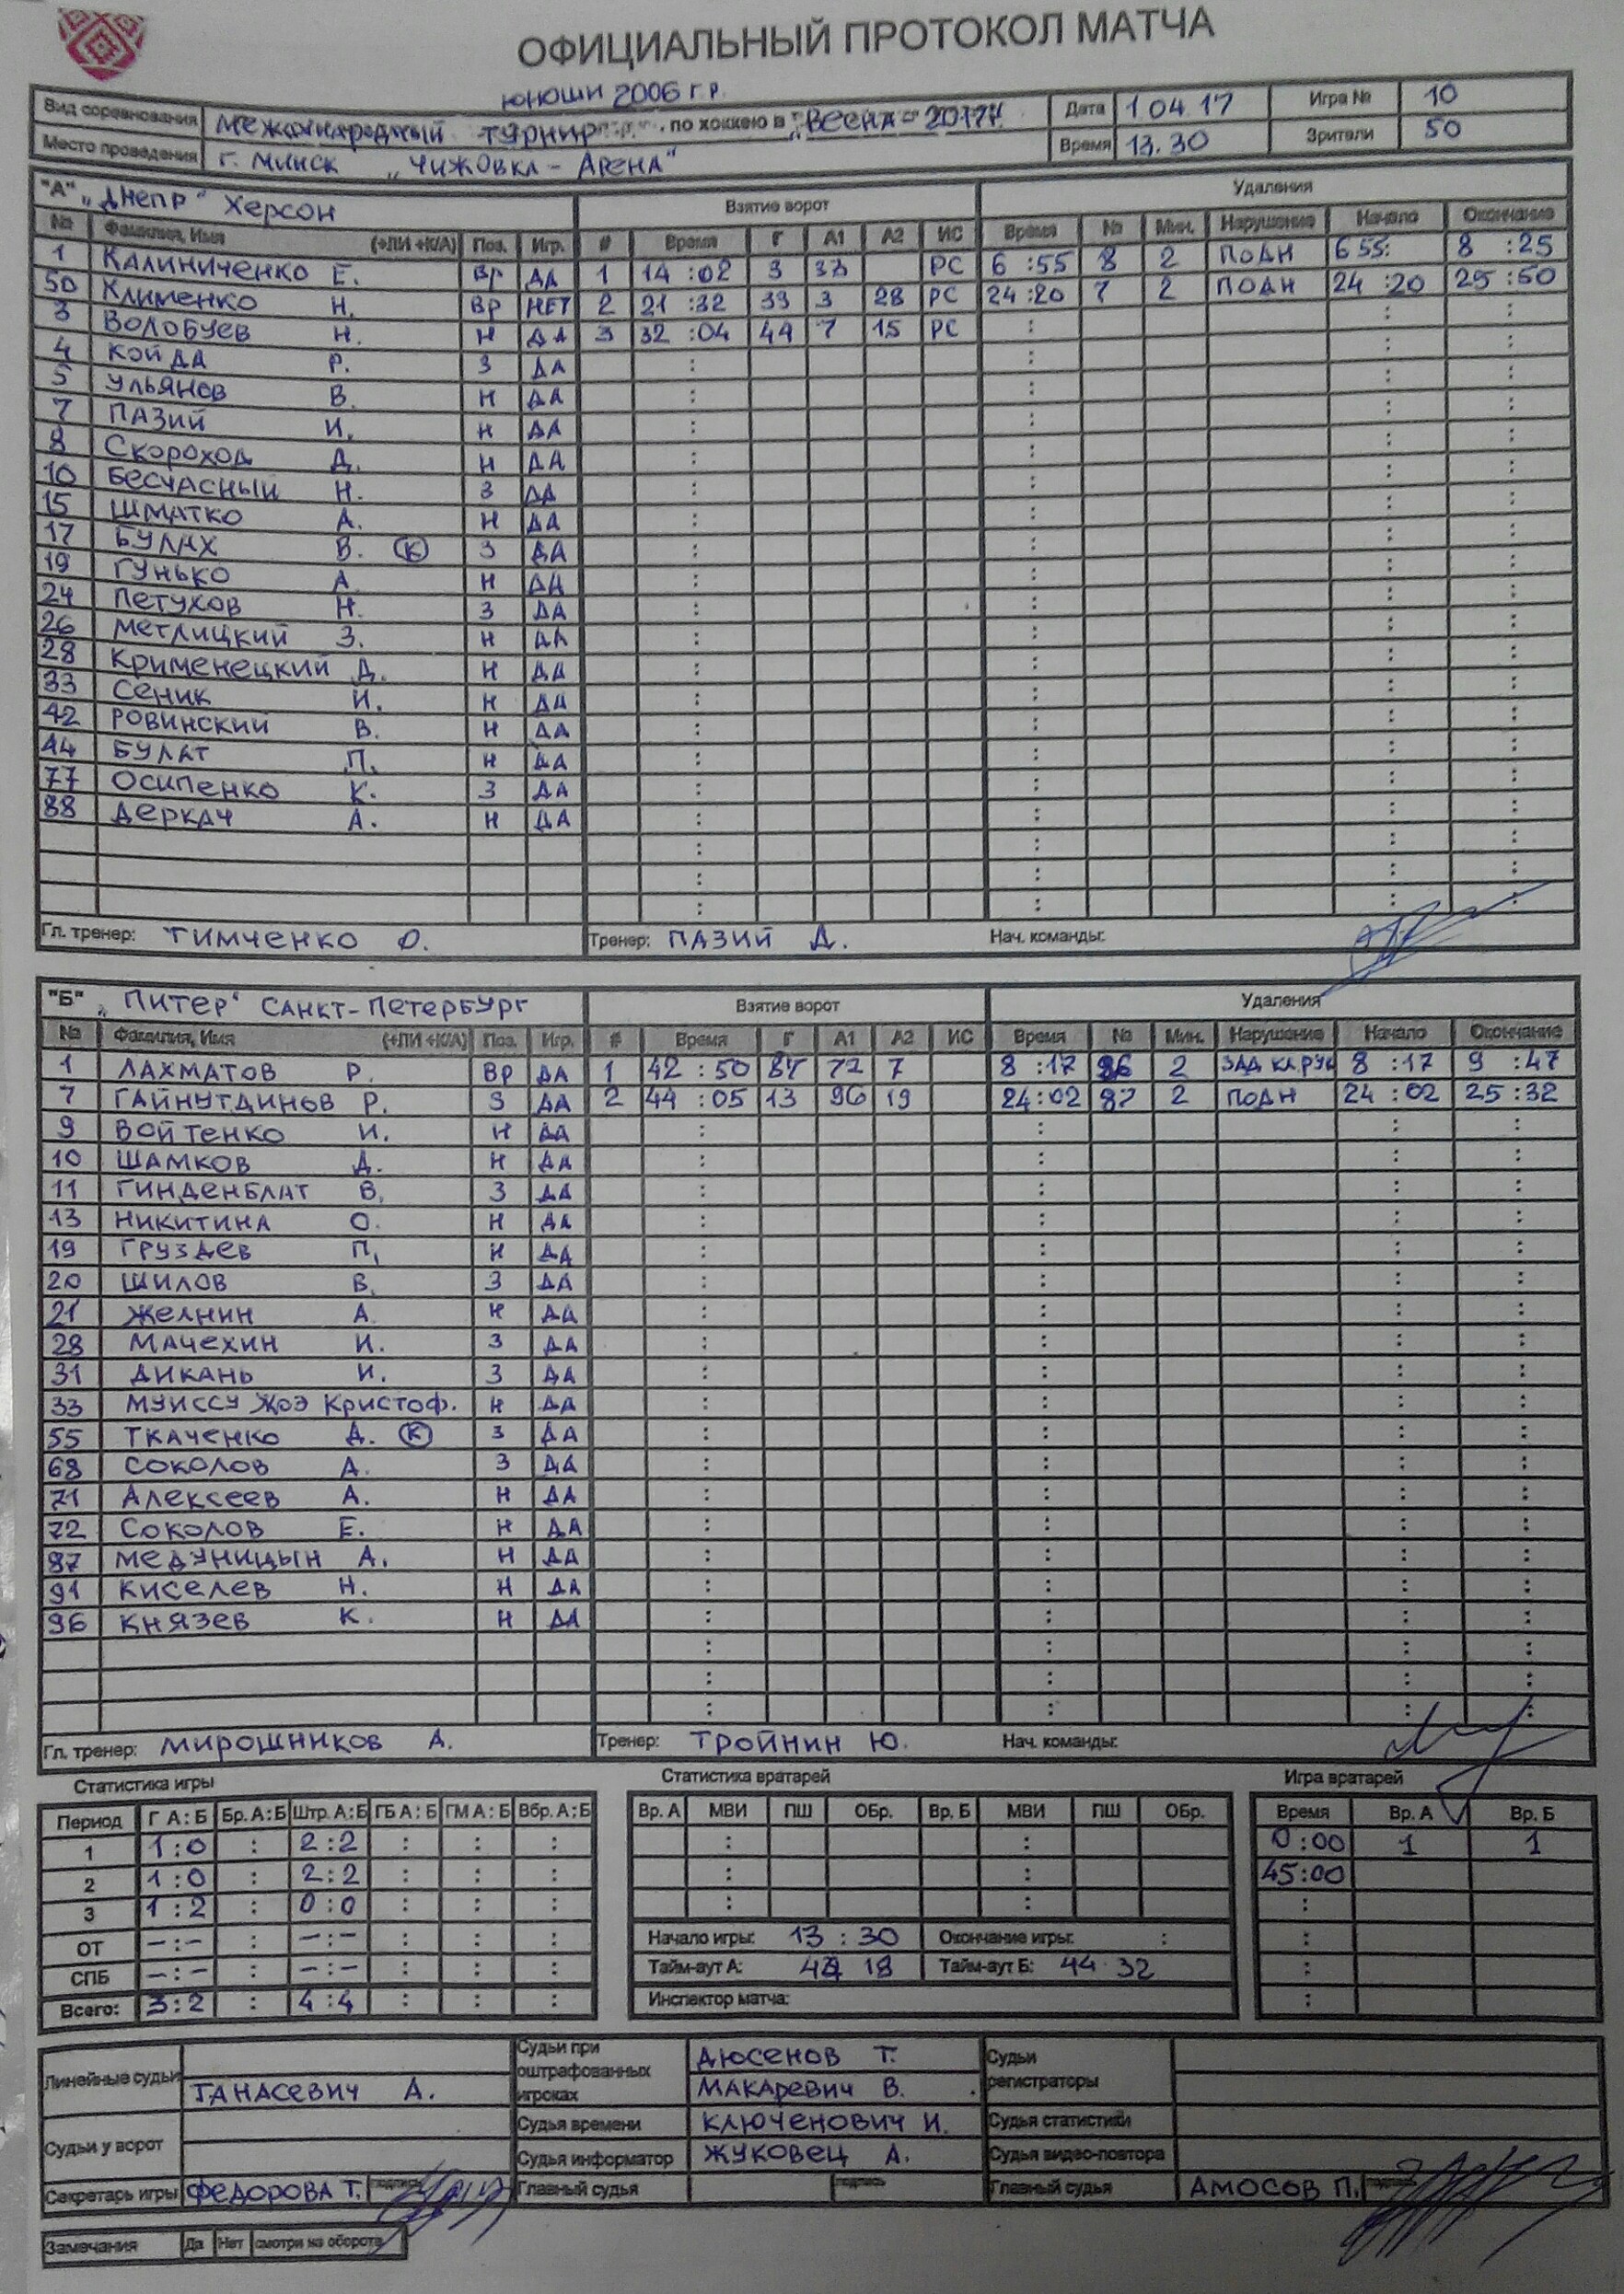 ОФИЦИАЛЬНЫЙ ПРОТОКОЛ МАТЧА
юноши 2006 г.р.
Вид соревнования Международный турнир по хоккею в "Весна-2017" Дата 1 04 17 Игра № 10
Место проведения г. Минск "Чижовка-Арена" Время 13.30 Зрители 50
"А" "Днепр" Херсон Взятие ворот Удаления
№ Фамилия, Имя (+ЛИ +К/А) Поз. Игр. # Время Г А1 А2 ИС Время № Мин. Нарушение Начало Окончание
1 Калиниченко Е. Вр ДА 1 14:02 3 33 РС 6:55 8 2 ПОДН 6 55: 8:25
50 Клименко Н. Вр НЕТ 2 21:32 33 3 28 РС 24:20 7 2 ПОДН 24:20 25:50
3 Волобуев Н. Н ДА 3 32:04 44 7 15 РС : : :
4 Койда Р. З ДА : : : :
5 Ульянов В. Н ДА : : : :
7 Пазий И. Н ДА : : : :
8 Скороход Д. Н ДА : : : :
10 Бесчасный Н. З ДА : : : :
15 Шматко А. Н ДА : : : :
17 Булах В. (К) З ДА : : : :
19 Гунько А. Н ДА : : : :
24 Петухов Н. З ДА : : : :
26 Метлицкий З. Н ДА : : : :
28 Крименецкий Д. Н ДА : : : :
33 Сеник И. Н ДА : : : :
42 Ровинский В. Н ДА : : : :
44 Булат П. Н ДА : : : :
77 Осипенко К. З ДА : : : :
88 Деркач А. Н ДА : : : :
: : : :
: : : :
: : : :
Гл. тренер: Тимченко О. Тренер: Пазий Д. Нач. команды:
"Б" "Питер" Санкт-Петербург Взятие ворот Удаления
№ Фамилия, Имя (+ЛИ +К/А) Поз. Игр. # Время Г А1 А2 ИС Время № Мин. Нарушение Начало Окончание
1 Лахматов Р. Вр ДА 1 42:50 87 72 7 8:17 96 2 ЗАД КЛ.РУК 8:17 9:47
7 Гайнутдинов Р. З ДА 2 44:05 13 96 19 24:02 87 2 ПОДН 24:02 25:32
9 Войтенко И. Н ДА : : : :
10 Шамков Д. Н ДА : : : :
11 Гинденблат В. З ДА : : : :
13 Никитина О. Н ДА : : : :
19 Груздев П. Н ДА : : : :
20 Шилов В. З ДА : : : :
21 Желнин А. Н ДА : : : :
28 Мачехин И. З ДА : : : :
31 Дикань И. З ДА : : : :
33 Муиссу Жоэ Кристоф. Н ДА : : : :
55 Ткаченко Д. (К) З ДА : : : :
68 Соколов А. З ДА : : : :
71 Алексеев А. Н ДА : : : :
72 Соколов Е. Н ДА : : : :
87 Медуницын А. Н ДА : : : :
91 Киселев Н. Н ДА : : : :
96 Князев К. Н ДА : : : :
: : : :
: : : :
: : : :
Гл. тренер: Мирошников А. Тренер: Тройнин Ю. Нач. команды:
Статистика игры Статистика вратарей Игра вратарей
Период Г А:Б Бр. А:Б Штр. А:Б ГБ А:Б ГМ А:Б Вбр. А:Б Вр. А МВИ ПШ ОБр. Вр. Б МВИ ПШ ОБр. Время Вр. А Вр. Б
1 1:0 : 2:2 : : : : : 0:00 1 1
2 1:0 : 2:2 : : : : : 45:00
3 1:2 : 0:0 : : : : : :
ОТ -:- : -:- : : : Начало игры: 13:30 Окончание игры: : :
СПБ -:- : -:- : : : Тайм-аут А: 18 Тайм-аут Б: 44 32 :
Всего: 3:2 : 4:4 : : : Инспектор матча: :
Линейные судьи Танасевич А. Судьи при оштрафованных игроках Дюсенов Т. Макаревич В. Судьи регистраторы
Судьи у ворот Судья времени Ключенович И. Судья статистики
Судья информатор Жуковец А. Судья видео-повтора
Секретарь игры Федорова Т. подпись Главный судья подпись Главный судья Амосов П. подпись
Замечания Да Нет смотри на обороте